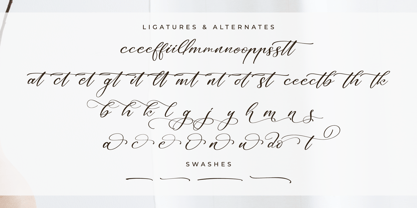 LIGATURES & ALTERNATES
ccceeffiillmmnnooppssttt
at ct et gt it lt mt nt ot st ceectb th tk
b h k l g j y h m n s
a c e o n w do t
SWASHES